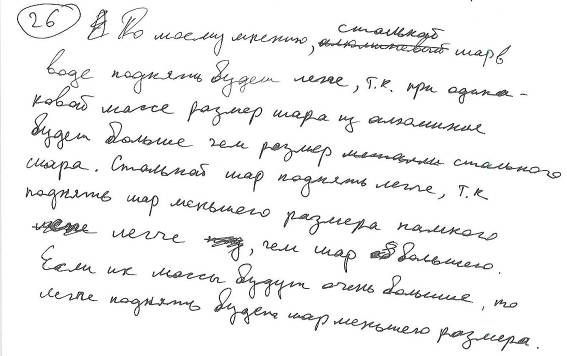 26 По моему мнению, стальной шар в
воде поднять будет легче, т.к. при одина-
ковой массе размер шара из алюминие
будет больше чем размер стального
шара. Стальной шар поднять легче, т.к
поднять шар меньшего размера намного
легче, чем шар большего.
Если их массы будут очень большие, то
легче поднять будет шар меньшего размера.